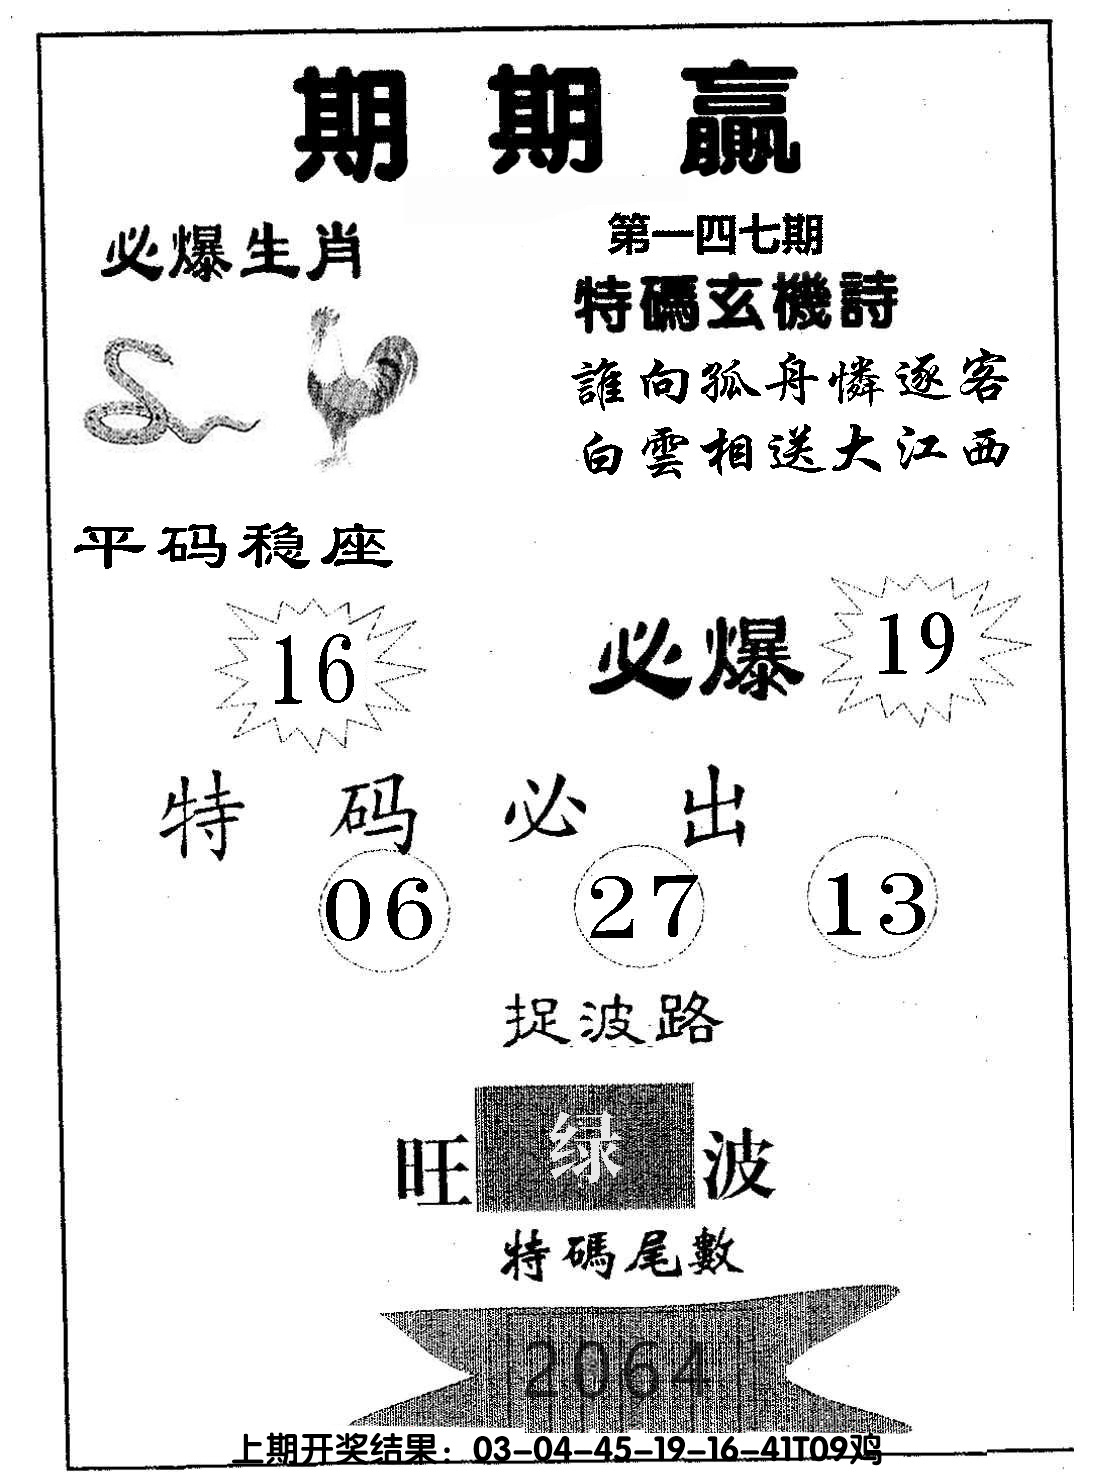 期期赢
必爆生肖
第一四七期
特碼玄機詩
誰向孤舟憐逐客
白雲相送大江西
平码稳座
16
必爆
19
特码必出
06 27 13
捉波路
旺绿波
特碼尾數
2064
上期开奖结果：03-04-45-19-16-41T09鸡